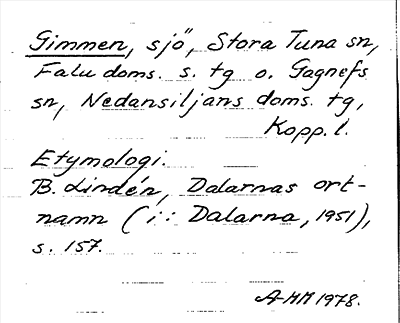 Gimmen, sjö, Stora Tuna sn,
Falu doms. s. tg o. Gagnefs
sn, Nedansiljans doms. tg,
Kopp. l.
Etymologi.
B. Lindén, Dalarnas ort-
namn (i: Dalarna, 1951),
s. 157.
A-MM 1978.